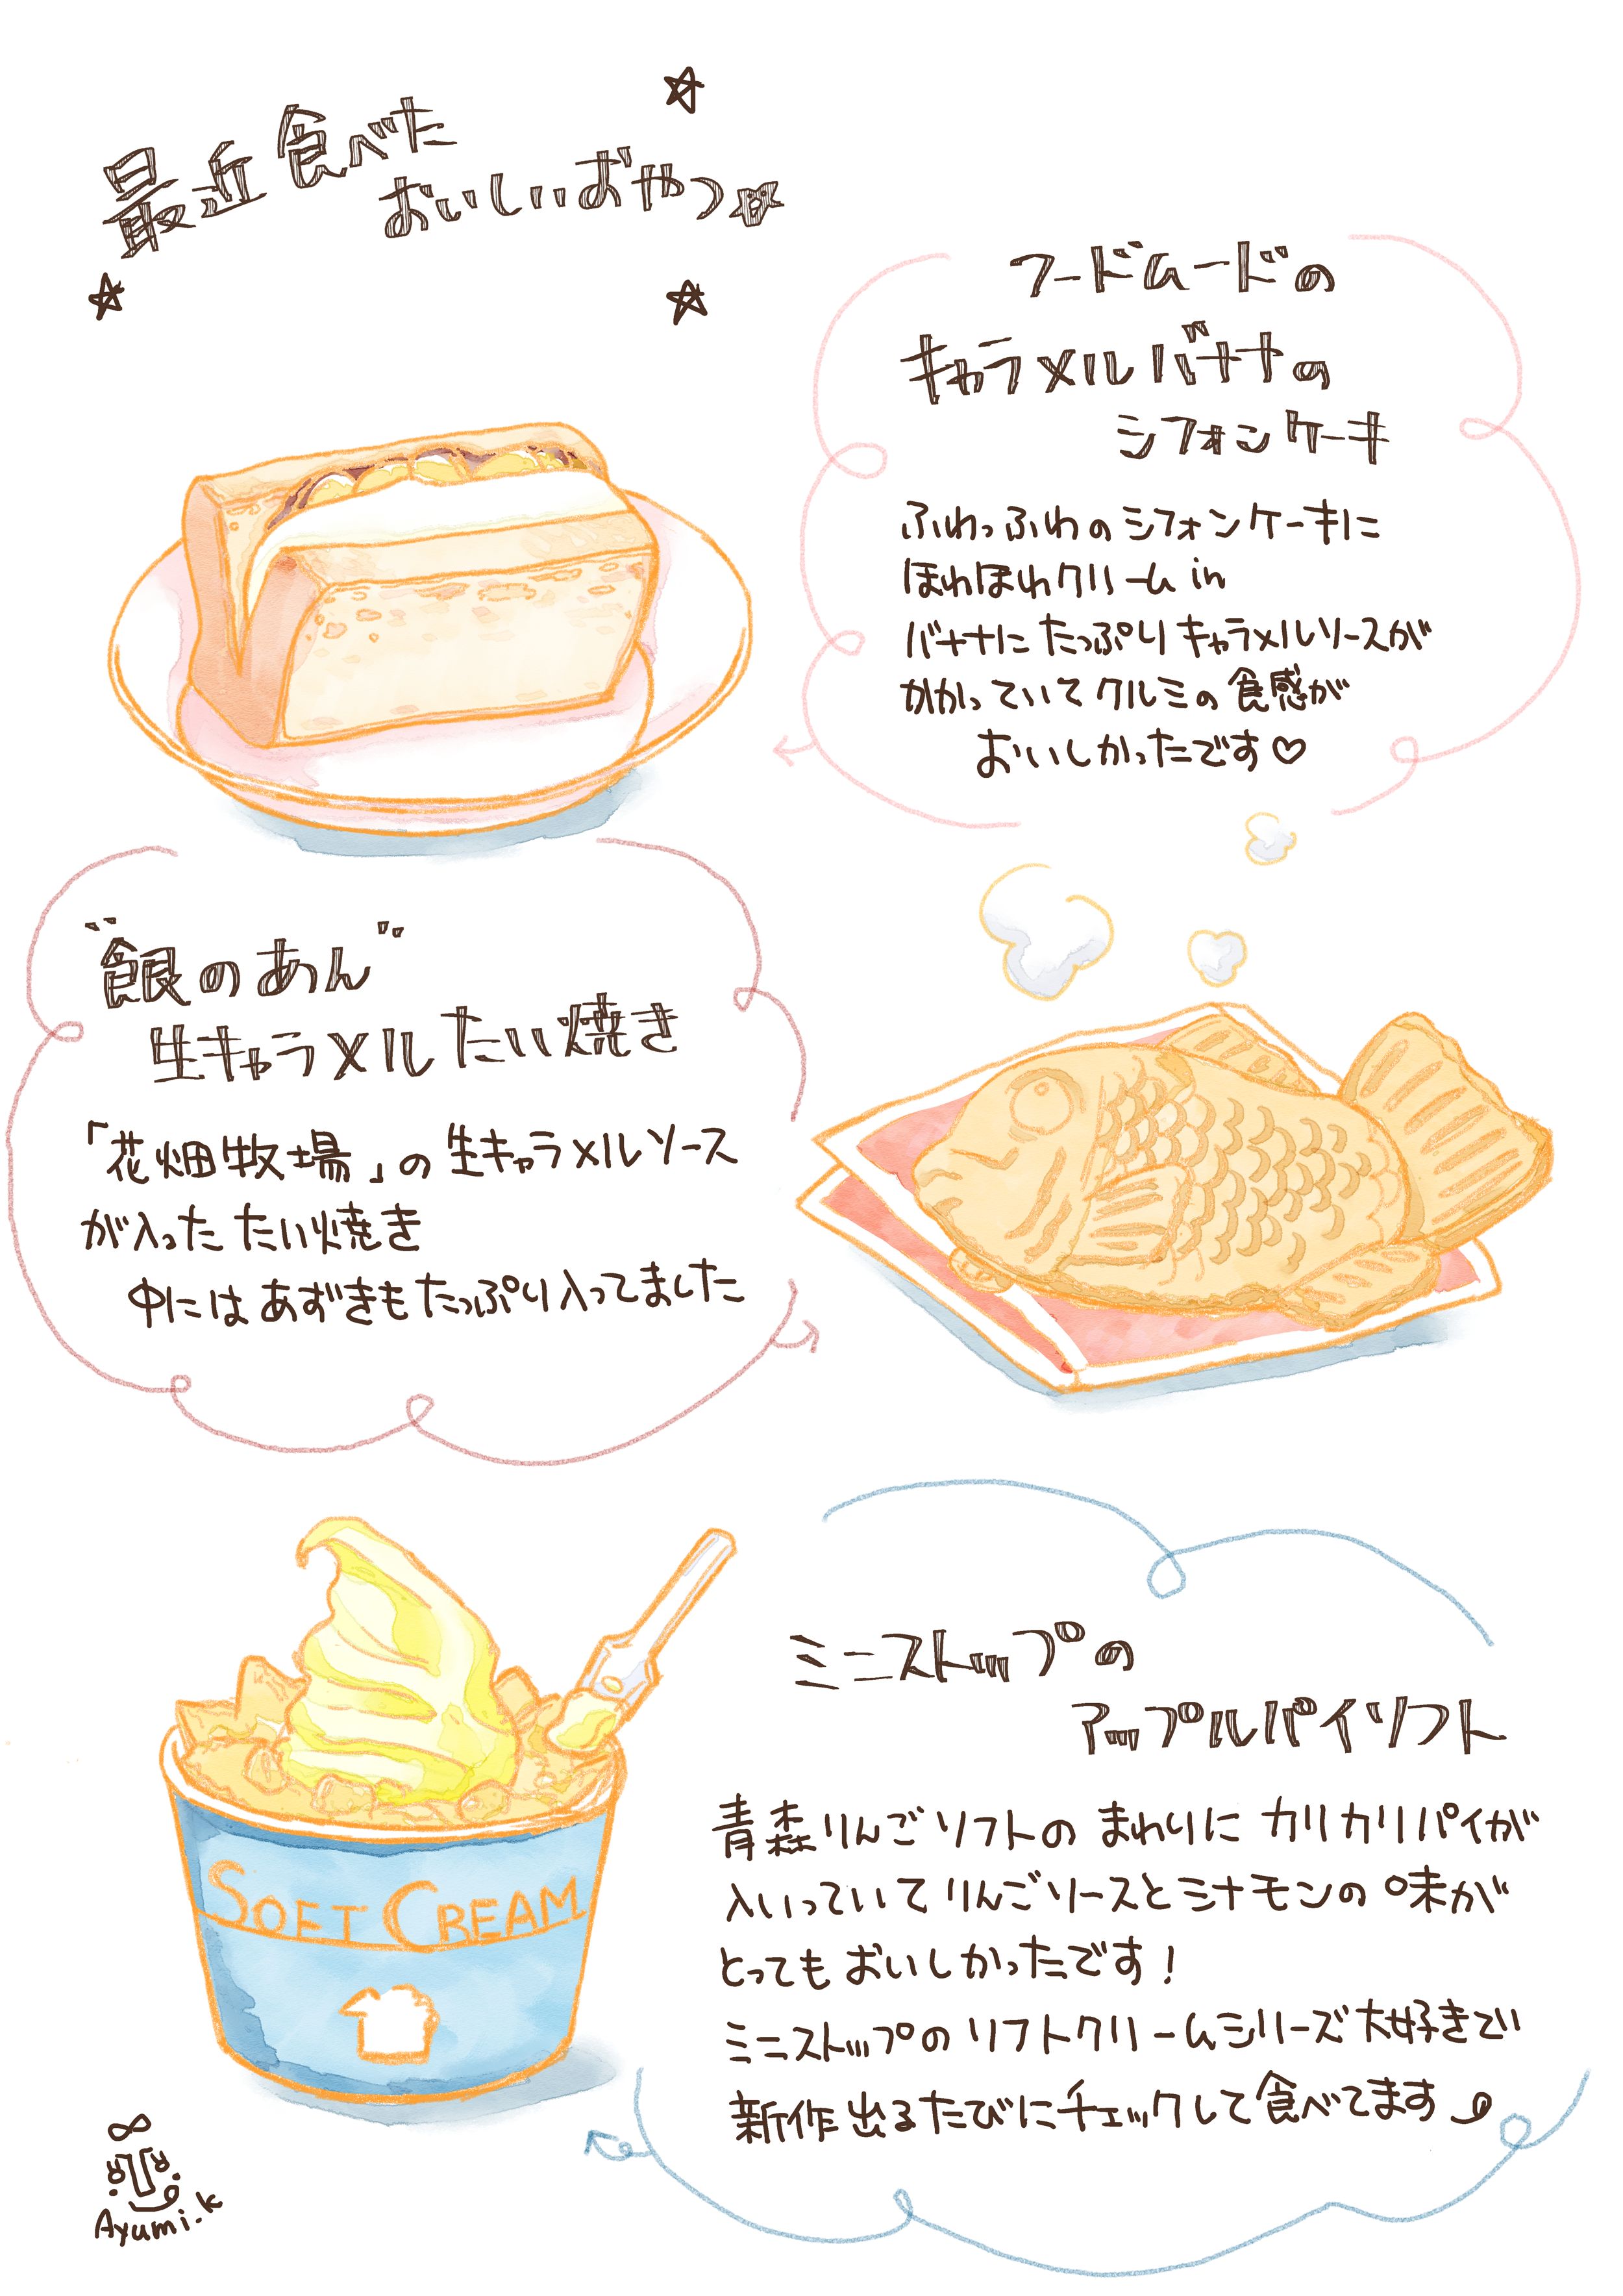 最近食べた
おいしいおやつ
フードムードの
キャラメルバナナの
シフォンケーキ
ふわっふわのシフォンケーキに
ほわほわクリームin
バナナにたっぷりキャラメルソースが
かかっていてクルミの食感が
おいしかったです♡
"銀のあん"
生キャラメルたい焼き
「花畑牧場」の生キャラメルソース
が入ったたい焼き
中にはあずきもたっぷり入ってました
ミニストップの
アップルパイソフト
青森りんごソフトのまわりにカリカリパイが
入いっていてりんごソースとシナモンの味が
とってもおいしかったです!
ミニストップのソフトクリームシリーズ大好きでい
新作出るたびにチェックして食べてます
SOFT CREAM
Ayumi.k